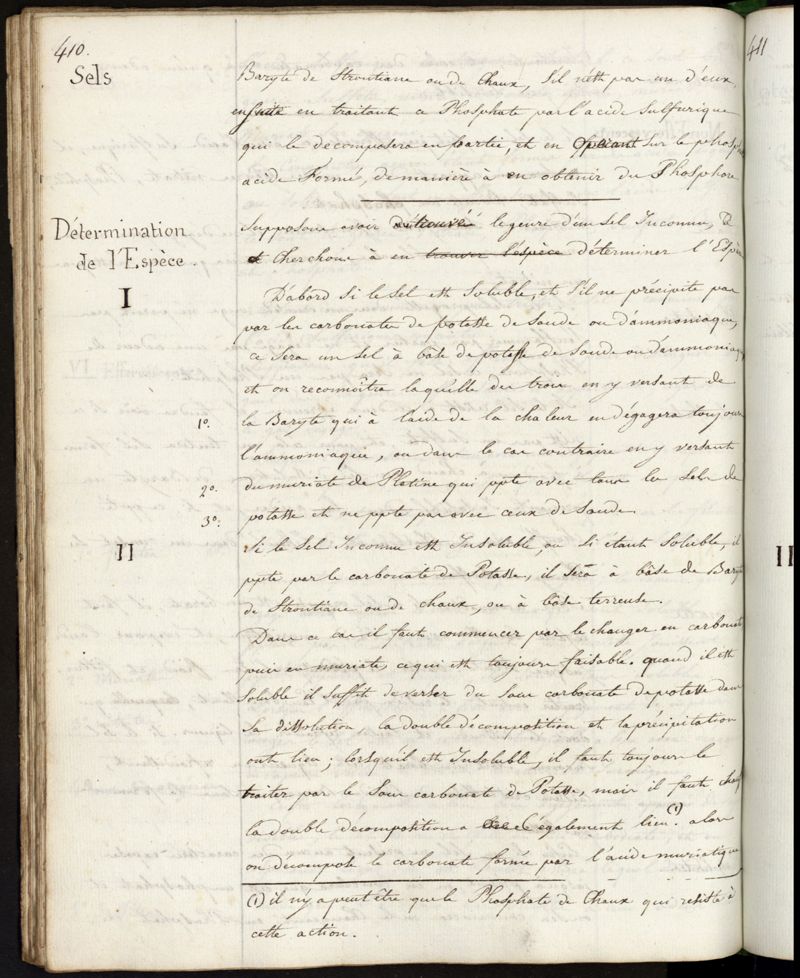 410.
411
Sels
Baryte de Strontiane ou de Chaux, S'il n'est pas un d'eux,
ensuite en traitant ce Phosphate par l'acide Sulfurique
qui le decomposera en partie, et en opérant sur le phosph
acide Formé, de manière à en obtenir du Phosphore
Détermination
de l'Espèce.
Supposons avoir le genre d'un Sel Inconnu, &
et Cherchons à en trouver l'espèce déterminer l'Espè
I
D'abord Si le Sel est Soluble, et S'il ne précipite pas
par les carbonates de potasse de Soude ou d'ammoniaque,
ce Sera un Sel à bâse de potasse de Soude ou d'ammoniaq
et on reconnoîtra laquelle des trois en y versant de
1º. la Baryte qui à l'aide de la chaleur en dégagera toujours
l'ammoniaque, ou dans le cas contraire en y versant
2º. du muriate de Platine qui ppte avec tous les Sels de
3º. potasse et ne ppte pas avec ceux de Soude.
II
Si le Sel Inconnu est Insoluble, ou Si etant Soluble, il
ppte par le carbonate de Potasse, il sera à bâse de Bary
de Strontiane ou de chaux, ou à bâse terreuse.
Dans ce cas il faut commencer par le changer en carbonate
puis en muriate, ce qui est toujours faisable. quand il est
Soluble il Suffit de verser du Sous carbonate de potasse dans
Sa dissolution, la double décomposition et la précipitation
ont lieu; lorsqu'il est Insoluble, il faut toujours le
traiter par le Sous carbonate de Potasse, mais il faut chauf
la double décomposition a également lieu (1). alors
on décompose le carbonate formé par l'acide muriatique
(1) il n'y a peut être que le Phosphate de Chaux qui résiste à
cette action.
II